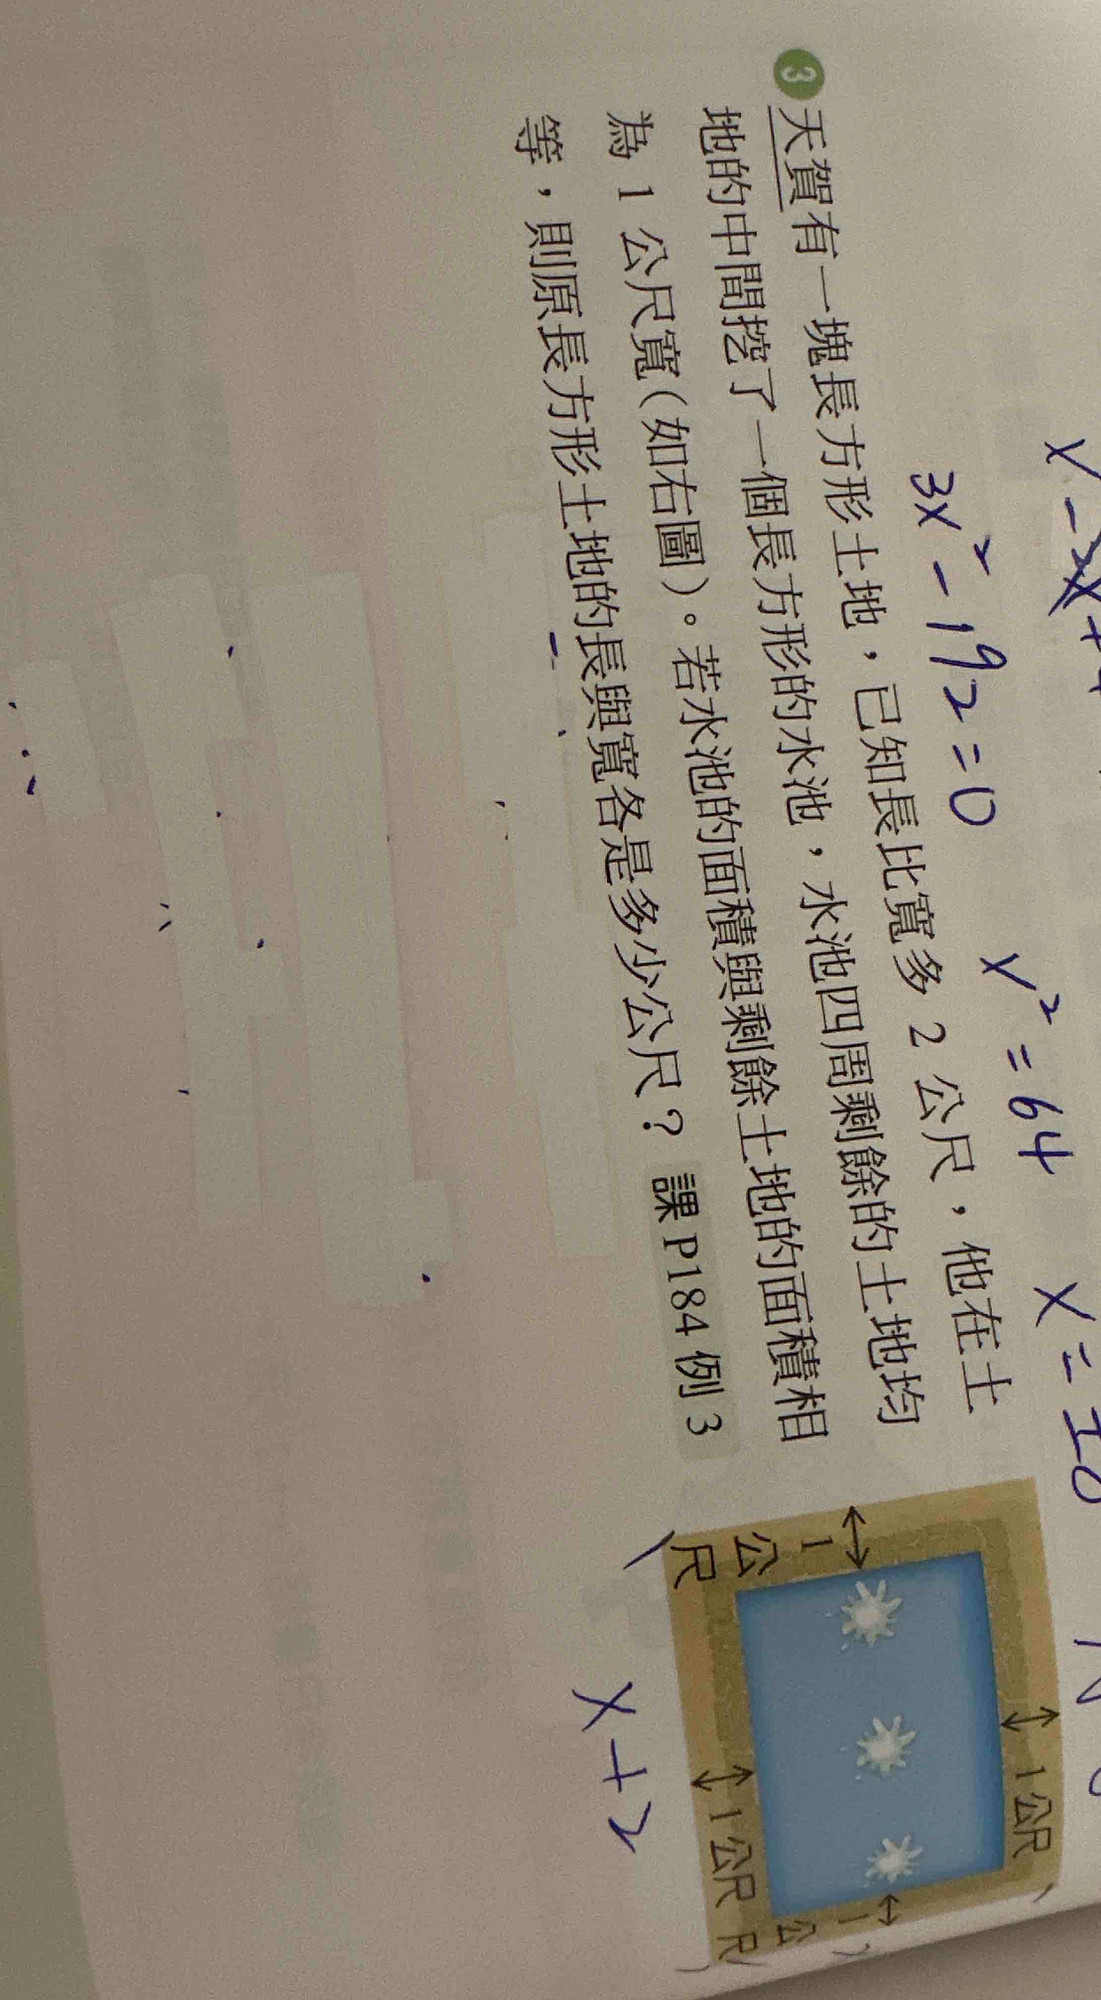 3x²-192=0
x²=64
3天賀有一塊長方形土地，已知長比寬多 2 公尺，他在土
地的中間挖了一個長方形的水池，水池四周剩餘的土地均
為 1 公尺寬(如右圖)。若水池的面積與剩餘土地的面積相
等，則原長方形土地的長與寬各是多少公尺？ 課 P184 例 3
1公尺
1公尺
1公尺
1公尺
x+2